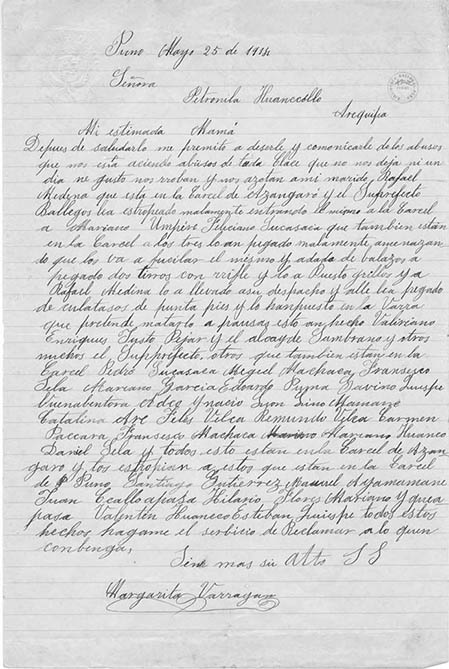 Puno Mayo 25 de 1914
Señora
Petronila Huanccollo
Arequipa
Mi estimada Mamá
Depues de saludarlo me premito a deserle y comonicarle de los abusos
que nos esta aciendo abusos de toda clace que no nos deja ni un
dia ne gusto nos rroban y nos azotan ami marido Rafael
Medina que está en la Carcel de Azangaro y el Suprefecto
Ballegos lia estropeado malamente entrando el mismo a la Carcel
a Mariano Umpire Feliciano Sucasaca que tambien están
en la Carcel a los tres lo an pegado malamente, amenazan
do que los va a fucilar el mesmo y adado de balazos a
pegado dos tiros con rrifle y lo a Puesto grillos y a
Rafael Medina lo a llevado asu despacho y alle lia pegado
de culatasos de punta pies y lo han puesto en la Varra
que pretende matarlo a pausas esto an hecho Valiriano
Enriques Justo Pejar y el alcayde Sambrano y otros
muchos el Supprofecto, otros que tambien estan en la
Carcel Pedro Sucasaca Miguel Machaca, Fransesco
Sela Marcano Garcia Edoardo Puma Davino Quispe
Buenabentora Adco Ynacio Luon Lino Mamane
Catalina Arc Feles Vilca Remundo Vilca Carmen
Paccara Fransesco Machaca Marcano Huanco
Daniel Sela y todos esto estan en la Carcel de Azan
garo y los estropian a estos que estan en la Carcel
de Puno, Santiago Gutierrez Manuel Apamamane
Juan Ccallo apasa Hilario Flores Mariano y quea
pasa Valentin Huanco Esteban Quispe todos estos
hechos hagame el serbicio de Reclamar a lo quen
conbenga,
Sin mas su Atto S S
Margarita Varragan